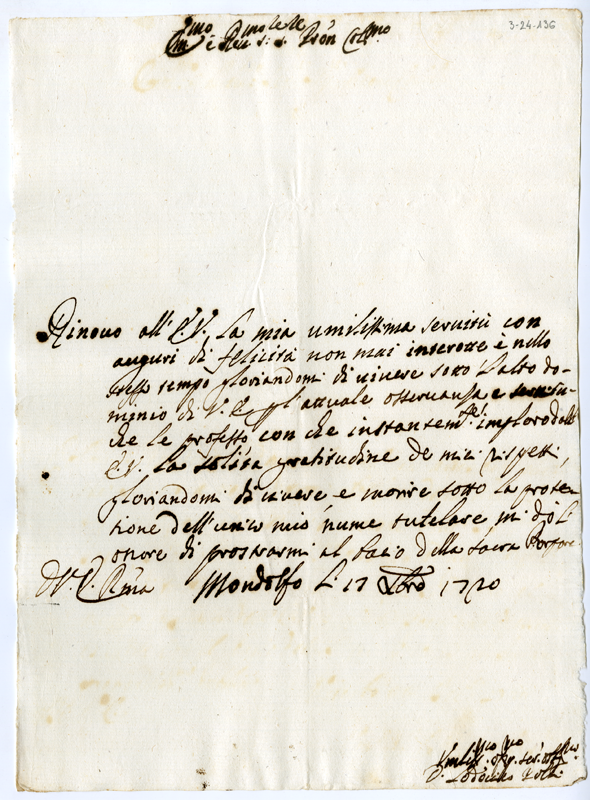 3-24-136
Em.mo e Rev.mo S.r S.r Pron Coll.mo
Rinovo all' E. V. la mia umilissima servitù con
auguri di felicità non mai interotte è nello
stesso tempo gloriandomi di vivere sotto l'alto do-
minio di V. E. p l'attuale osservanza e
che le professo con che instantem.te imploro dall'
E. V. la solita gratitudine de miei rispetti,
gloriandomi di vivere, e morire sotto la prote-
tione dell'unico mio nume tutelare mi dò l'
onore di prostrarmi al bacio della sacra Porpora.
D V. E. R.ma Mondolfo li 17 Xbre 1720
Umiliss.mo
D. Lodovico